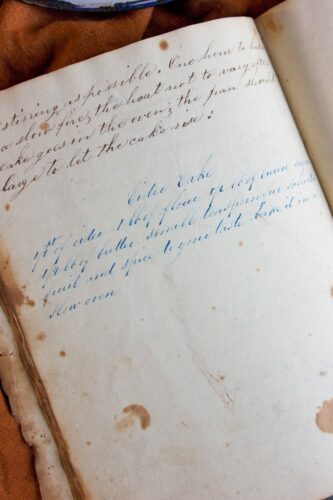 stirring as possible. One hour to bake
a slow fire, the heat not to vary after
cake goes in the oven; the pan should
large to let the cake rise.
Cider Cake
1/2 pt of cider 1 lb of flour 1/2 lb of brown sugar
1/4 lb of butter small teaspoonful
fruit and spice to your taste bake it in a
slow oven